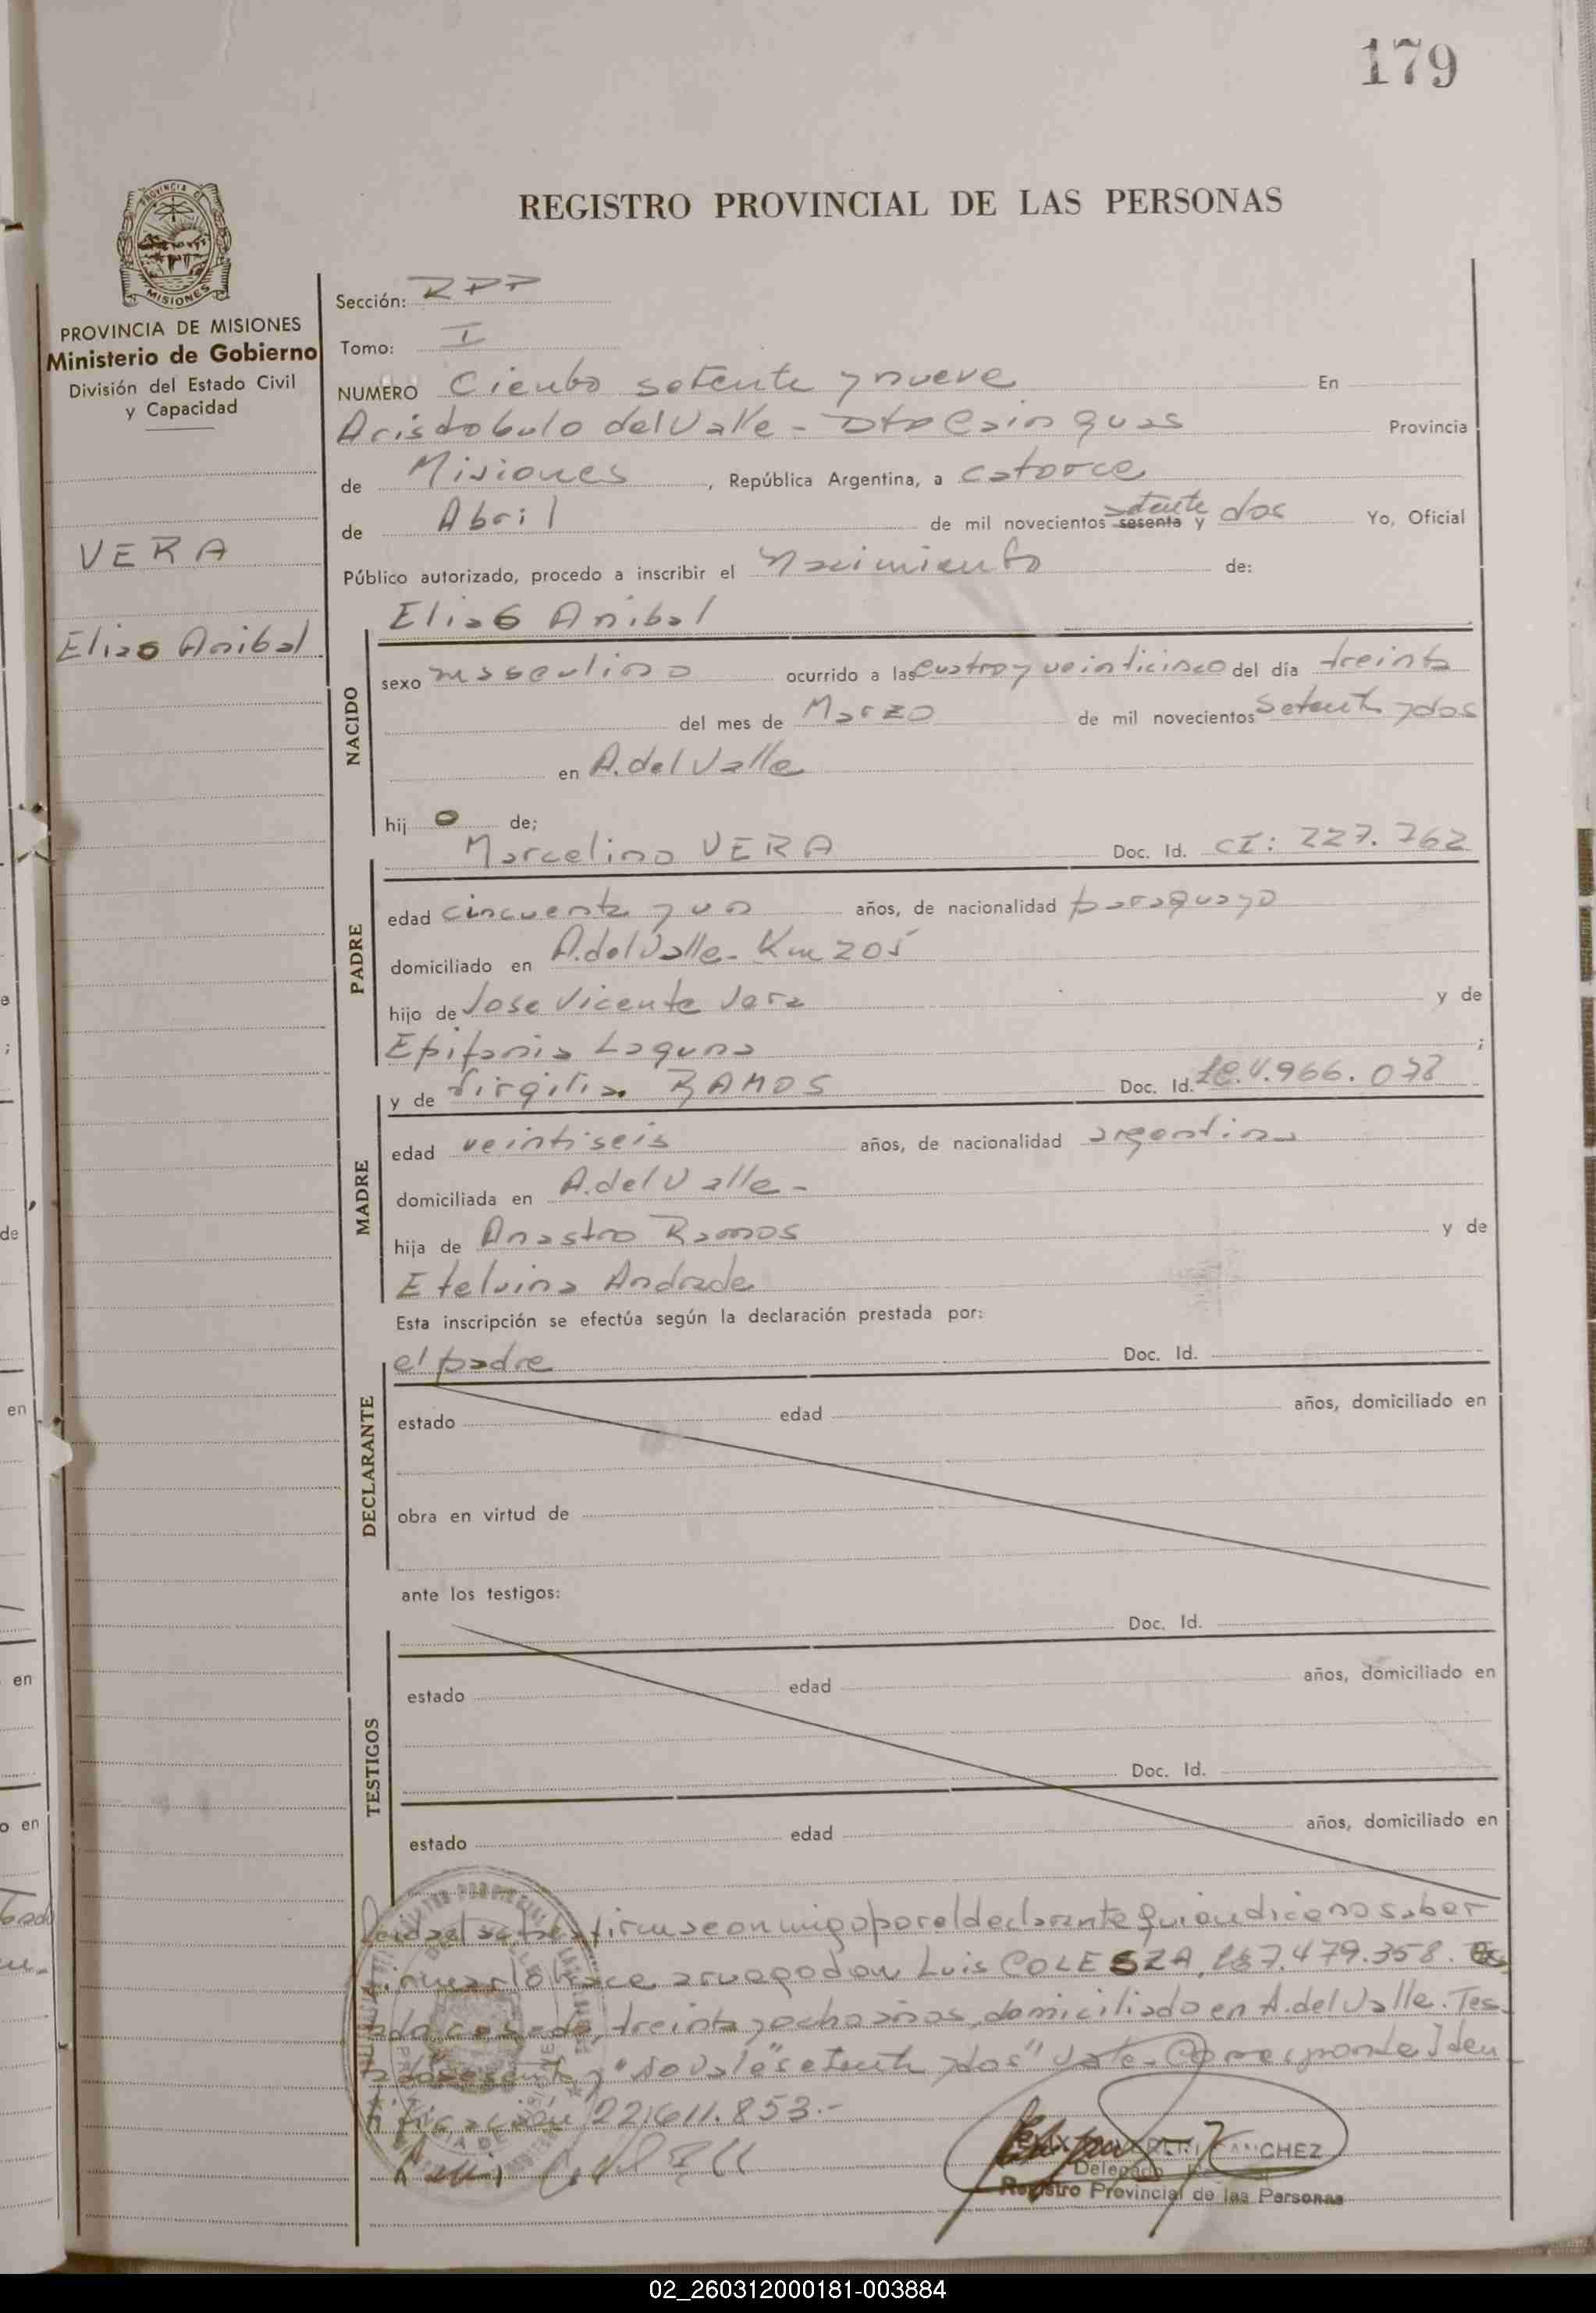 179
REGISTRO PROVINCIAL DE LAS PERSONAS
PROVINCIA DE
MISIONES
PROVINCIA DE MISIONES
Ministerio de Gobierno
División del Estado Civil
y Capacidad
VERA
Elias Anibal
Sección: RPP
Tomo: I
NUMERO Ciento setenta y nueve En
Aristobulo del Valle - Dto Cainguas Provincia
de Misiones, República Argentina, a catorce
de Abril de mil novecientos sesenta setenta y dos Yo, Oficial
Público autorizado, procedo a inscribir el Nacimiento de:
Elias Anibal
NACIDO
sexo masculino ocurrido a las cuatro y veinticinco del día treinta
del mes de Marzo de mil novecientos setenta y dos
en A. del Valle
hijo de;
Marcelino VERA Doc. Id. CI: 227.762
PADRE
edad cincuenta y un años, de nacionalidad paraguayo
domiciliado en A. del Valle - Km 205
hijo de Jose Vicente Vera y de
Epifania Laguna ;
y de Virgilia RAMOS Doc. Id.
MADRE
edad veintiseis años, de nacionalidad argentina
domiciliada en A. del Valle -
hija de Anastro Ramos y de
Etelvina Andrade
Esta inscripción se efectúa según la declaración prestada por:
el padre Doc. Id.
DECLARANTE
estado edad años, domiciliado en
obra en virtud de
ante los testigos:
Doc. Id.
TESTIGOS
estado edad años, domiciliado en
Doc. Id.
estado edad años, domiciliado en
Leida el acta firma conmigo por el declarante quien dice no saber
firmar lo hace a ruego don Luis COLESZA, 7.479.358. Es
tado casado, treinta y ocho años, domiciliado en A. del Valle. Tes
tado sesenta y "no vale" setenta y dos" vale - Corresponde Iden
tificación 22.611.853.-
SANCHEZ
Delegado
Registro Provincial de las Personas
02_260312000181-003884